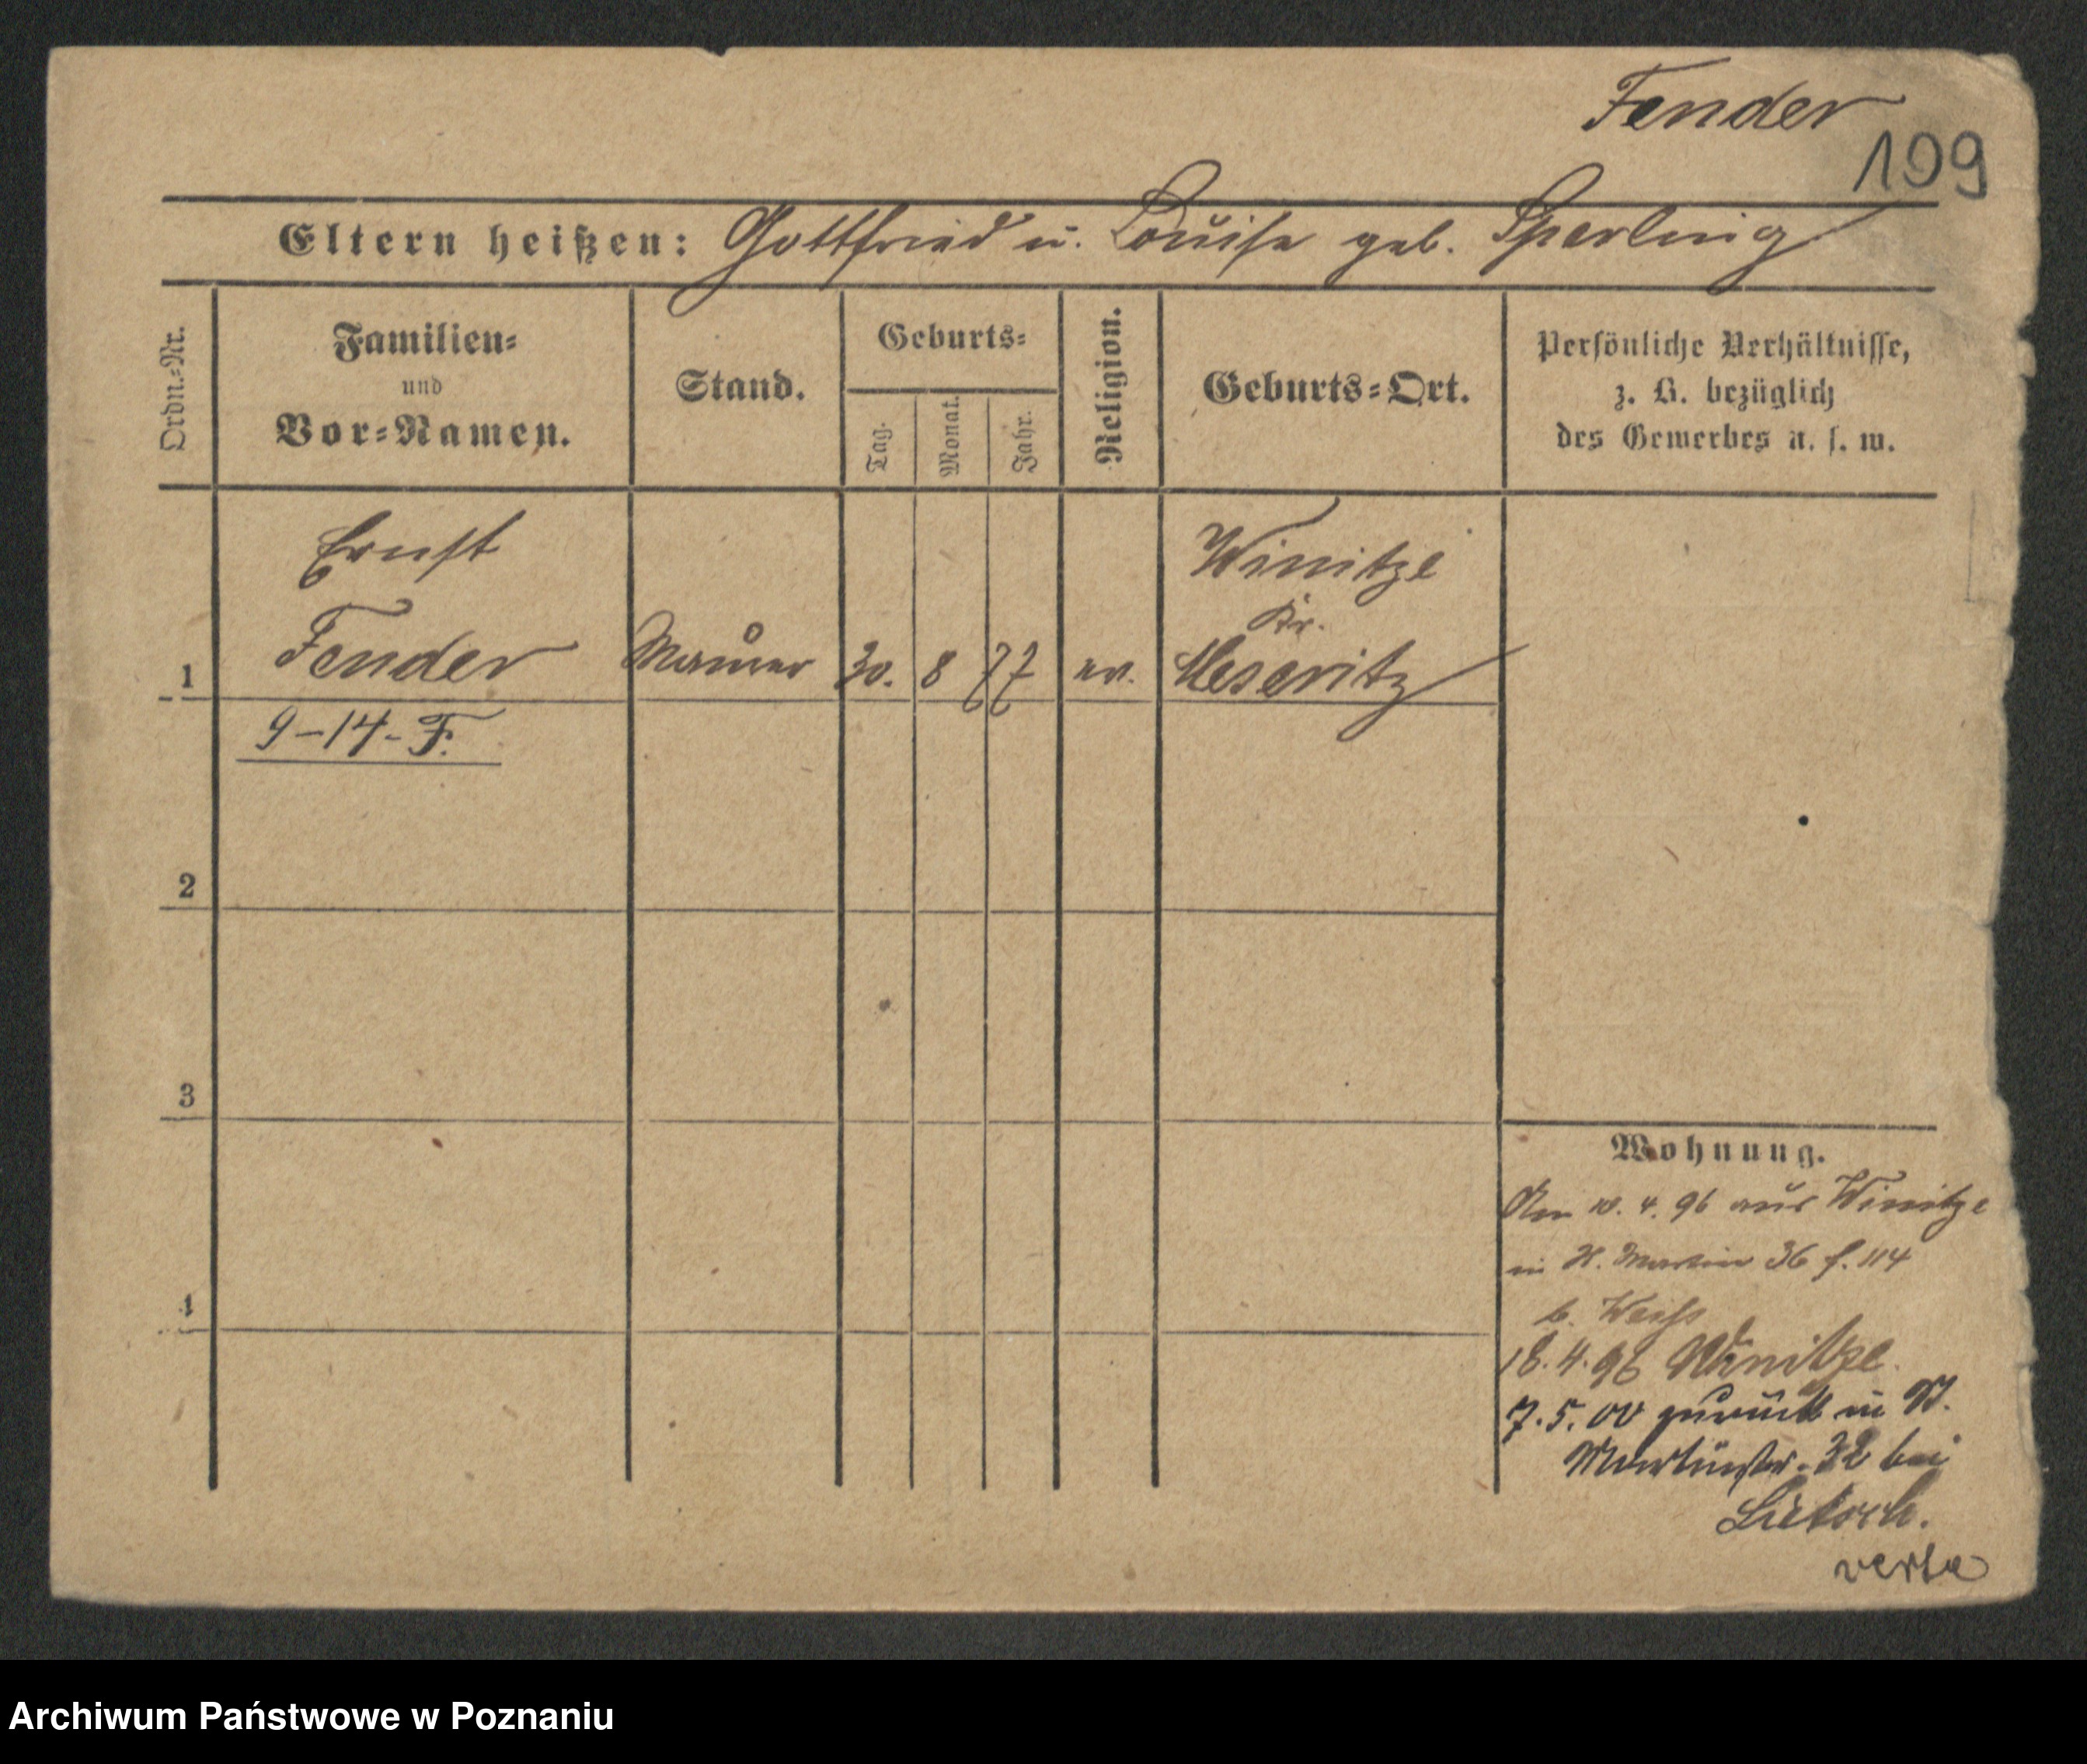 Fender
199
Eltern heißen: Gottfried u. Louise geb. Sperling
Ordn.-Nr.
Familien-
und
Vor-Namen.
Stand.
Geburts-
Tag.
Monat.
Jahr.
Religion.
Geburts-Ort.
Persönliche Verhältnisse,
z. B. bezüglich
des Gewerbes u. s. w.
Ernst
Winitze
Kr.
1 Fender Maurer 30. 8 77 ev. Meseritz
9-14-F.
2
3
4
Wohnung.
10. 4. 96 aus Winitze
in St. Martin 36 114
b. Weiss
18. 4. 96 Winitze.
7. 5. 00 zurück in St.
Martinstr. 32 bei
Lietsch.
verte
Archiwum Państwowe w Poznaniu